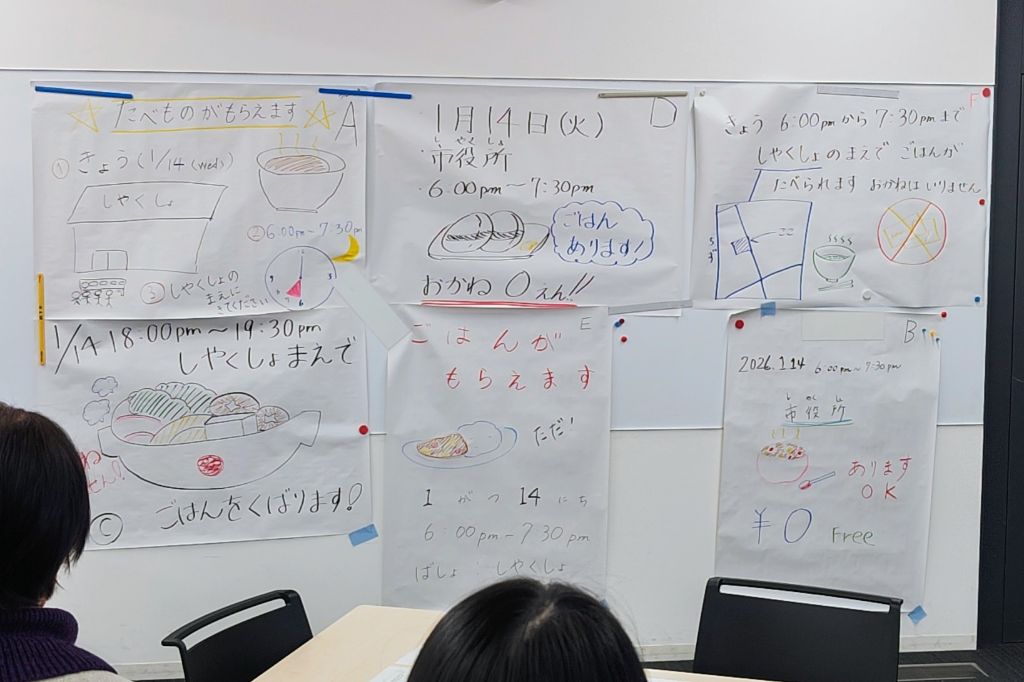 たべものがもらえます
A
① きょう(1/14(wed))
しやくしょ
② 6:00pm〜7:30pm
③ しやくしょの
まえに
きてください
D
1月14日(火)
し やく しょ
・市役所
・6:00pm〜7:30pm
ごはん
あります!
おかね 0えん!!
F
きょう 6:00pmから7:30pmまで
しやくしょのまえで ごはんが
たべられます おかねはいりません
ココ
1/14 18:00pm〜19:30pm
しやくしょまえで
ごはんをくばります!
C
E
ごはんが
もらえます
ただ!
1がつ14にち
6:00pm-7:30pm
ばしょ:しやくしょ
B
2026.1.14 6:00pm〜7:30pm
し やく しょ
市役所
あります
OK
¥0 Free